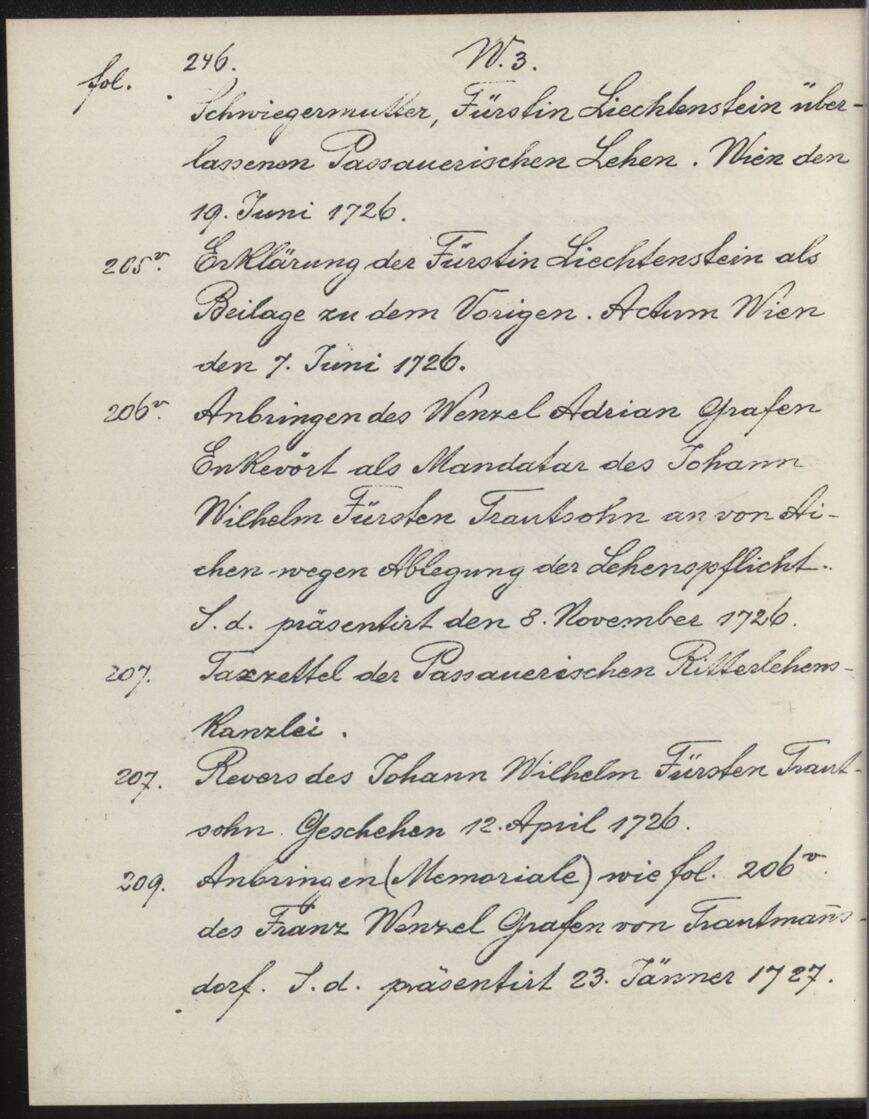 246. W. 3.
fol. Schwiegermutter, Fürstin Liechtenstein über-
lassenen Passauerischen Lehen. Wien den
19. Juni 1726.
205v. Erklärung der Fürstin Liechtenstein als
Beilage zu dem Vorigen. Actum Wien
den 7. Juni 1726.
206v. Anbringen des Wenzel Adrian Grafen
Enkevört als Mandatar des Johann
Wilhelm Fürsten Trautsohn an von Ai-
chen wegen Ablegung der Lehenspflicht.
S. d. präsentirt den 8. November 1726.
207. Taxzettel der Passauerischen Ritterlehens-
kanzlei.
207. Revers des Johann Wilhelm Fürsten Traut-
sohn. Geschehen 12. April 1726.
209. Anbringen (Memoriale) wie fol. 206v.
des Franz Wenzel Grafen von Trautman̄s-
dorf. S. d. präsentirt 23. Jänner 1727.